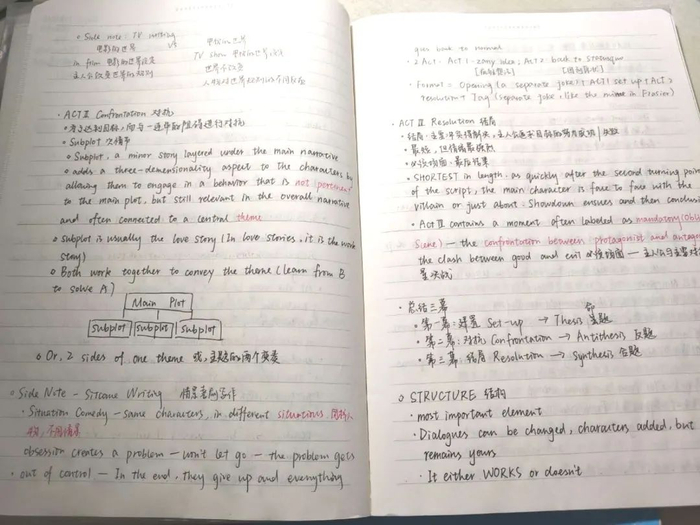 Side Note: TV writing
电影的世界 vs 电视的世界
in film 电影的世界
TV show
世界不改变
ACT II Confrontation 对抗
为了达到目标，向着一连串的阻碍进行对抗
Subplot 次情节
Subplot, a minor story layered under the main narrative
adds a three-demensionality aspect to the characters by
allowing them to engage in a behavior that is not pertinent
to the main plot, but still relevant in the overall narrative
and often connected to a central theme
Subplot is usually the love story (In love stories, it is the work
story)
Both work together to convey the theme (learn from B
to solve A)
Main Plot
subplot subplot subplot
Or, 2 sides of one theme 或，主题的两个
Side Note - Sitcome Writing 情景喜剧写作
Situation Comedy - same characters, in different situations 同样人
物，不同情景
obsession creates a problem - won't let go - the problem gets
out of control - In the end, they give up and everything
goes back to normal
2 Act: ACT 1 - zany idea; ACT 2 back to
Format = Opening (a separate joke) + ACT 1 set up + ACT 2
resolution + Tag (separate joke, like the in Frasier)
ACT III Resolution 结局
最短，但情绪最强烈
SHORTEST in length, as quickly after the second turning point
of the script, the main character is face to face with the
villain or just about. Showdown ensues and then conclusion
ACT III contains a moment often labeled as mandatory
Scene) - the confrontation between protagonist and
the clash between good and evil
总结三幕
第一幕：建置 Set-up → Thesis 命题
第二幕：对抗 Confrontation → Antithesis 反题
第三幕：结局 Resolution → Synthesis 合题
STRUCTURE 结构
most important element
Dialogues can be changed, characters added, but
remains yours
It either WORKS or doesn't